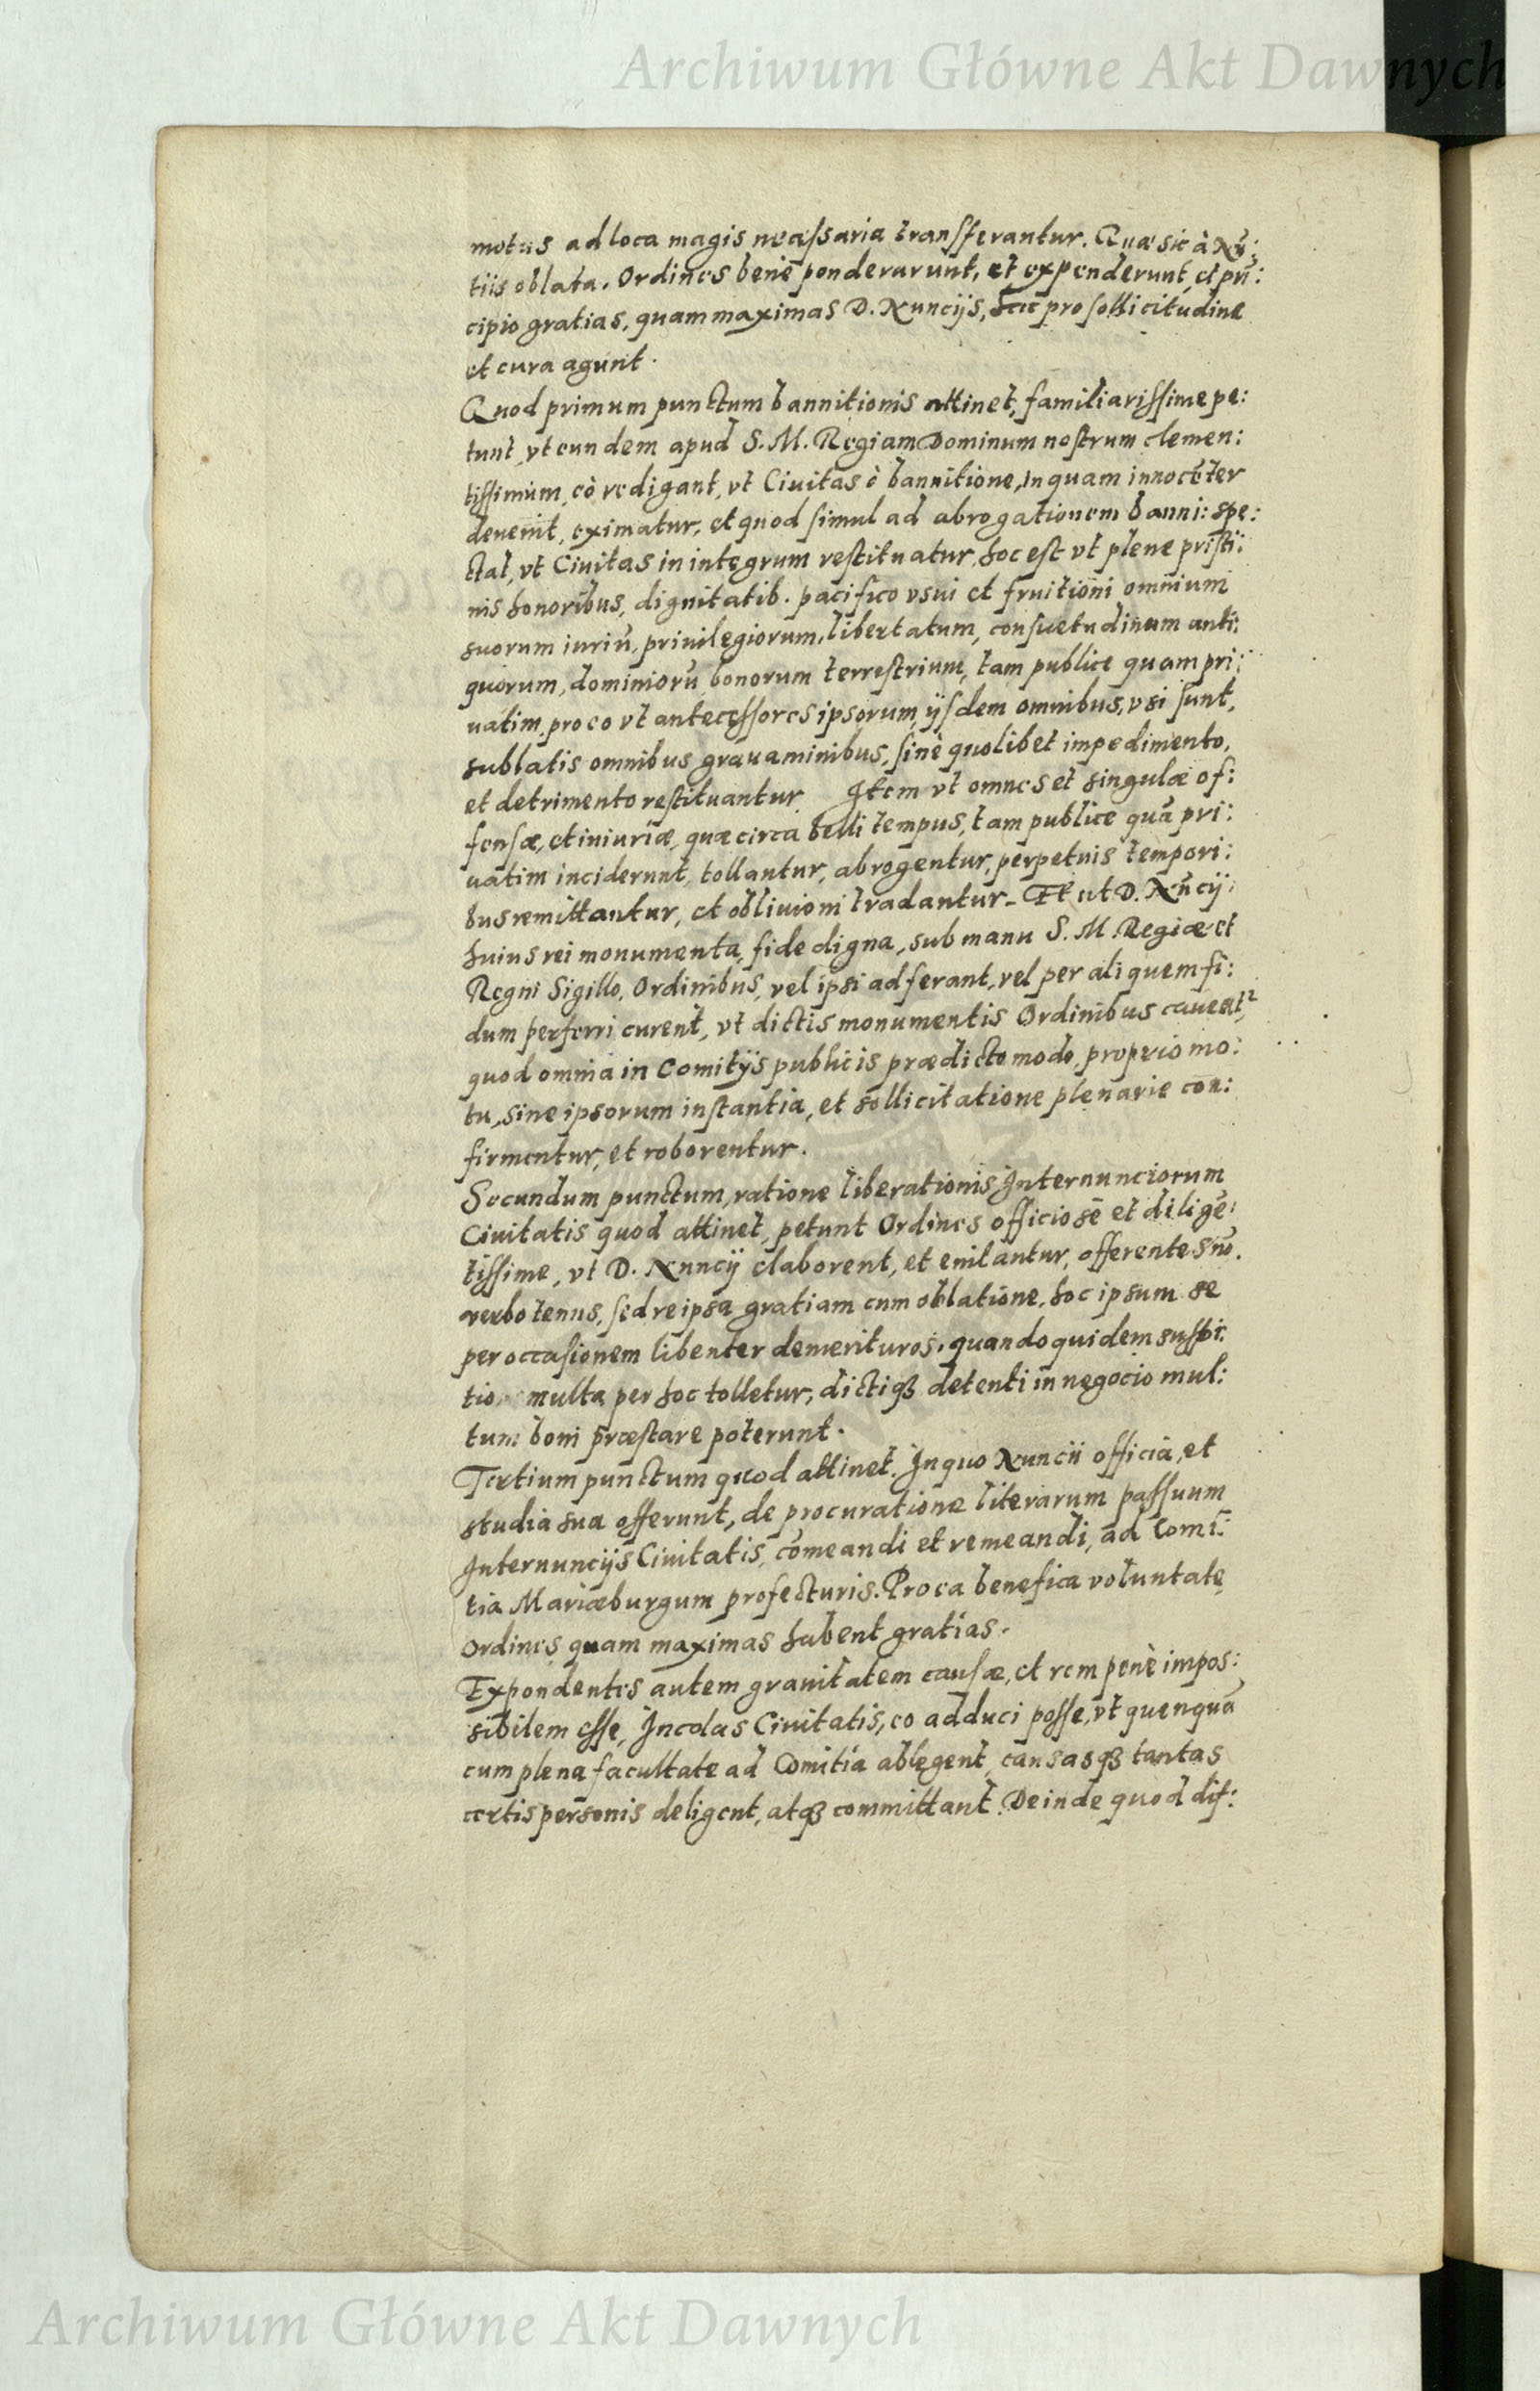 Archiwum Główne Akt Dawnych
motus ad loca magis necessaria transferantur. Quæ sic à Nũ:
tiis oblata. Ordines benè ponderarunt, et expenderunt, et prĩ:
cipio gratias, quam maximas D. Nuncijs, hac pro sollicitudine
et cura agunt.
Quod primum punctum bannitionis attinet, familiarissime pe:
tunt, vt eundem apud S. M. Regiam Dominum nostrum clemen:
tissimum, eò redigant, vt Ciuitas è bannitione, in quam innocẽter
deuenit, eximatur, et quod simul ad abrogationem banni: spe:
ctat, vt Ciuitas in integrum restituatur, hoc est vt plene pristi:
nis honoribus, dignitatib. pacifico vsui et fruitioni omnium
suorum iuriũ, priuilegiorum, libertatum, consuetudinum anti:
quorum, dominiorũ bonorum terrestrium, tam publice quam pri:
uatim, pro eo vt antecessores ipsorum, ijsdem omnibus, vsi sunt,
sublatis omnibus grauaminibus, sinè quolibet impedimento,
et detrimento restituantur Item vt omnes et singulæ of:
fensæ, et iniuriæ, quæ circa belli tempus, tam publice quã pri:
uatim inciderunt, tollantur, abrogentur, perpetuis tempori:
bus remittantur, et obliuioni tradantur. Et ut D. Nũcij
huius rei monumenta, fide digna, sub manu S. M. Regiæ et
Regni Sigillo, Ordinibus, vel ipsi adferant, vel per aliquem fi:
dum perferri curent, vt dictis monumentis Ordinibus caueat,
quod omnia in Comitijs publicis prædicto modo, proprio mo:
tu, sine ipsorum instantia, et sollicitatione plenarie con:
firmentur, et roborentur.
Secundum punctum, ratione liberationis Internunciorum
Ciuitatis quod attinet, petunt Ordines officiosè et diligẽ:
tissime, vt D. Nuncij elaborent, et enitantur, offerentes nõ.
verbo tenus, sed re ipsa gratiam cum oblatione, hoc ipsum se
per occasionem libenter demerituros, quandoquidem suspi:
tio multa per hoc tolletur, dictiqȝ detenti in negocio mul:
tum boni præstare poterunt.
Tertium punctum quod attinet. In quo Nuncii officia, et
studia sua offerunt, de procuratione literarum passuum
Internuncijs Ciuitatis, cõmeandi et remeandi, ad Comi:
tia Mariæburgum profecturis. Pro ea benefica voluntate
Ordines quam maximas habent gratias.
Expondentes autem grauitatem causæ, et rem penè impos:
sibilem esse, Incolas Ciuitatis, eo adduci posse, vt quenquã
cum plena facultate ad Comitia ablegent, causasqȝ tantas
certis personis deligent, atqȝ committant. Deinde quod dif:
Archiwum Główne Akt Dawnych